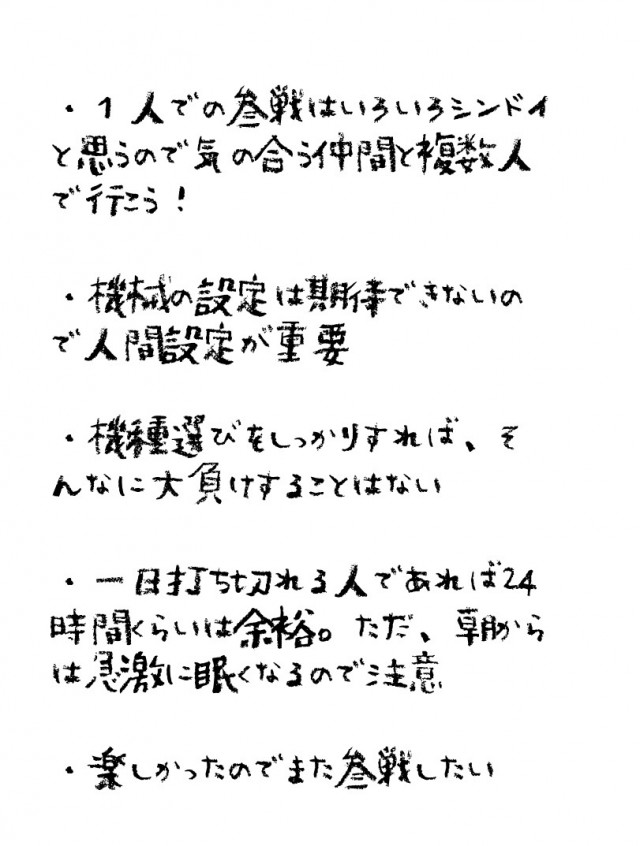 ・１人での参戦はいろいろシンドイ
と思うので気の合う仲間と複数人
で行こう！
・機械の設定は期待できないの
で人間設定が重要
・機種選びをしっかりすれば、そ
んなに大負けすることはない
・一日打ち切れる人であれば24
時間くらいは余裕。ただ、朝から
は急激に眠くなるので注意
・楽しかったのでまた参戦したい